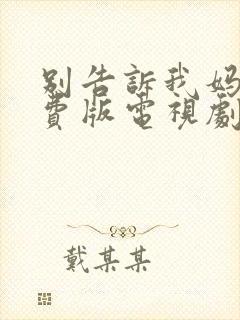 别告訴我妈
費版電視劇
戴某某